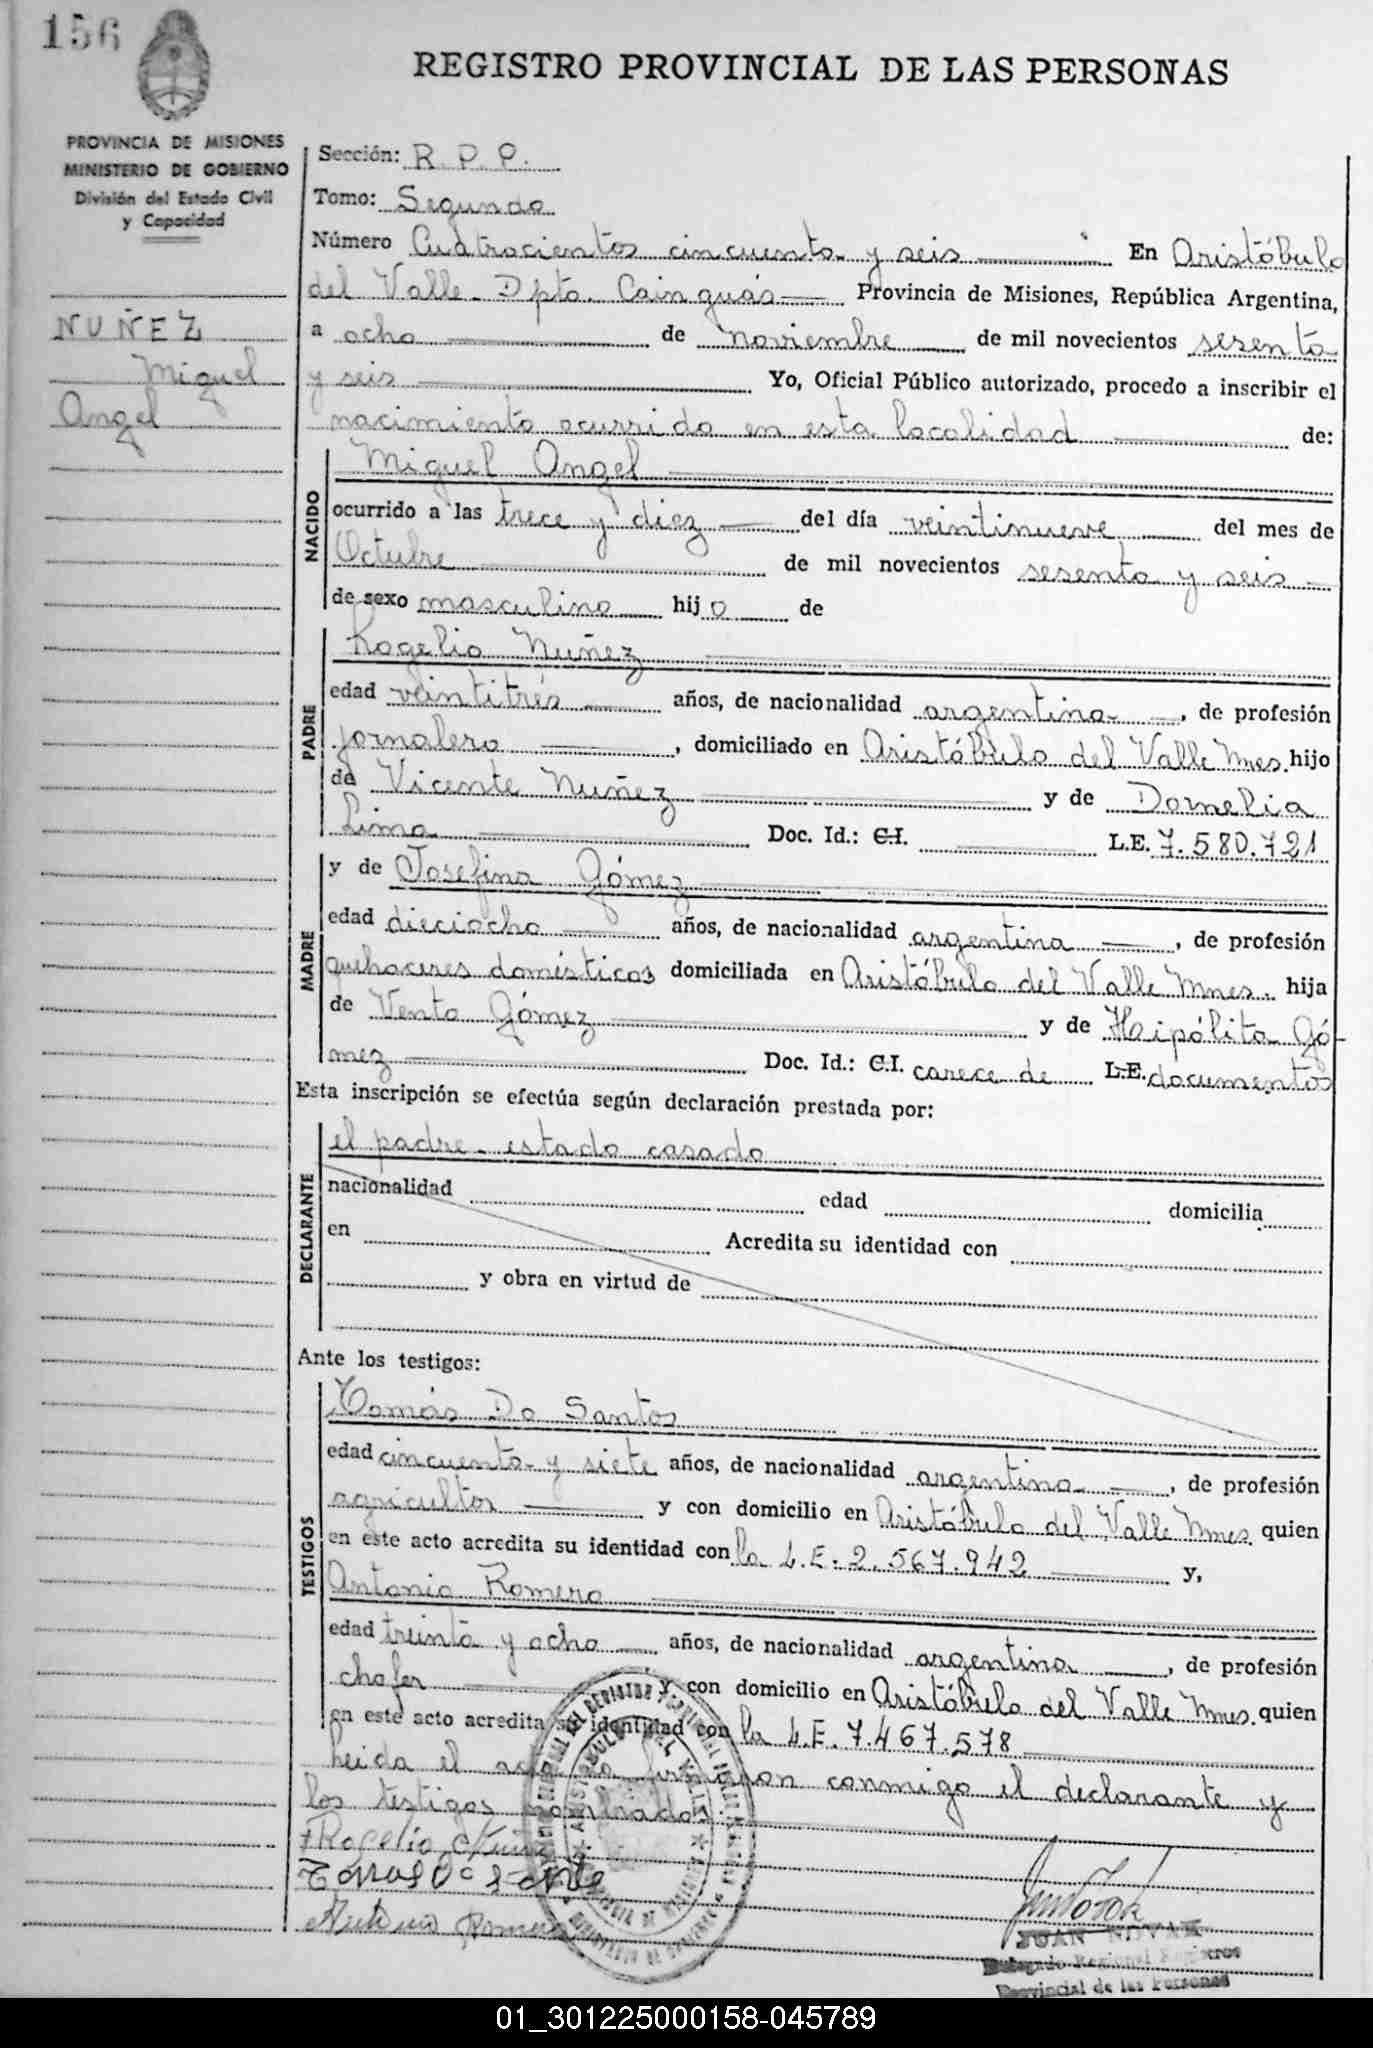 156
REGISTRO PROVINCIAL DE LAS PERSONAS
PROVINCIA DE MISIONES
MINISTERIO DE GOBIERNO
División del Estado Civil
y Capacidad
NUÑEZ
Miguel
Angel
Sección: R. P. P.
Tomo: Segundo
Número Cuatrocientos cincuenta y seis En Aristóbulo
del Valle - Dpto. Cainguás Provincia de Misiones, República Argentina,
a ocho de noviembre de mil novecientos sesenta
y seis Yo, Oficial Público autorizado, procedo a inscribir el
nacimiento ocurrido en esta localidad de:
NACIDO
Miguel Angel
ocurrido a las trece y diez del día veintinueve del mes de
Octubre de mil novecientos sesenta y seis
de sexo masculino hijo de
PADRE
Rogelio Nuñez
edad veintitrés años, de nacionalidad argentina, de profesión
jornalero, domiciliado en Aristóbulo del Valle Mnes. hijo
de Vicente Nuñez y de Dornelia
Lima Doc. Id.: C.I. L.E. 7.580.721
MADRE
y de Josefina Gómez
edad dieciocho años, de nacionalidad argentina, de profesión
quehaceres domésticos domiciliada en Aristóbulo del Valle Mnes. hija
de Vento Gómez y de Hipólita Gó-
mez Doc. Id.: C.I. carece de L.E. documentos
Esta inscripción se efectúa según declaración prestada por:
DECLARANTE
el padre - estado casado
nacionalidad edad domicilia
en Acredita su identidad con
y obra en virtud de
Ante los testigos:
TESTIGOS
Tomás Do Santos
edad cincuenta y siete años, de nacionalidad argentina, de profesión
agricultor y con domicilio en Aristóbulo del Valle Mnes. quien
en este acto acredita su identidad con la L.E. 2.567.942 y,
Antonio Romero
edad treinta y ocho años, de nacionalidad argentina, de profesión
chofer y con domicilio en Aristóbulo del Valle Mnes. quien
en este acto acredita su identidad con la L.E. 7.467.578
leida el acta la firmaron conmigo el declarante y
los testigos nominados.
Rogelio Nuñez
Antonio Romero
JUAN NOVAK
Delegado Regional Registros
Provincial de las Personas
01_301225000158-045789